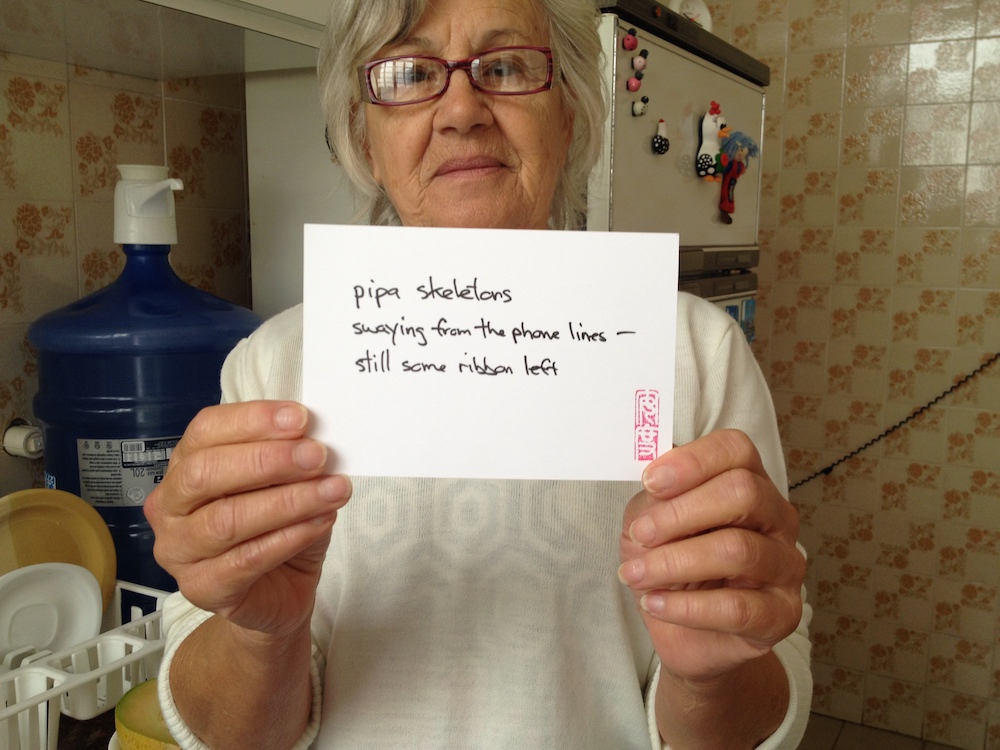 pipa skeletons
swaying from the phone lines —
still some ribbon left
20L